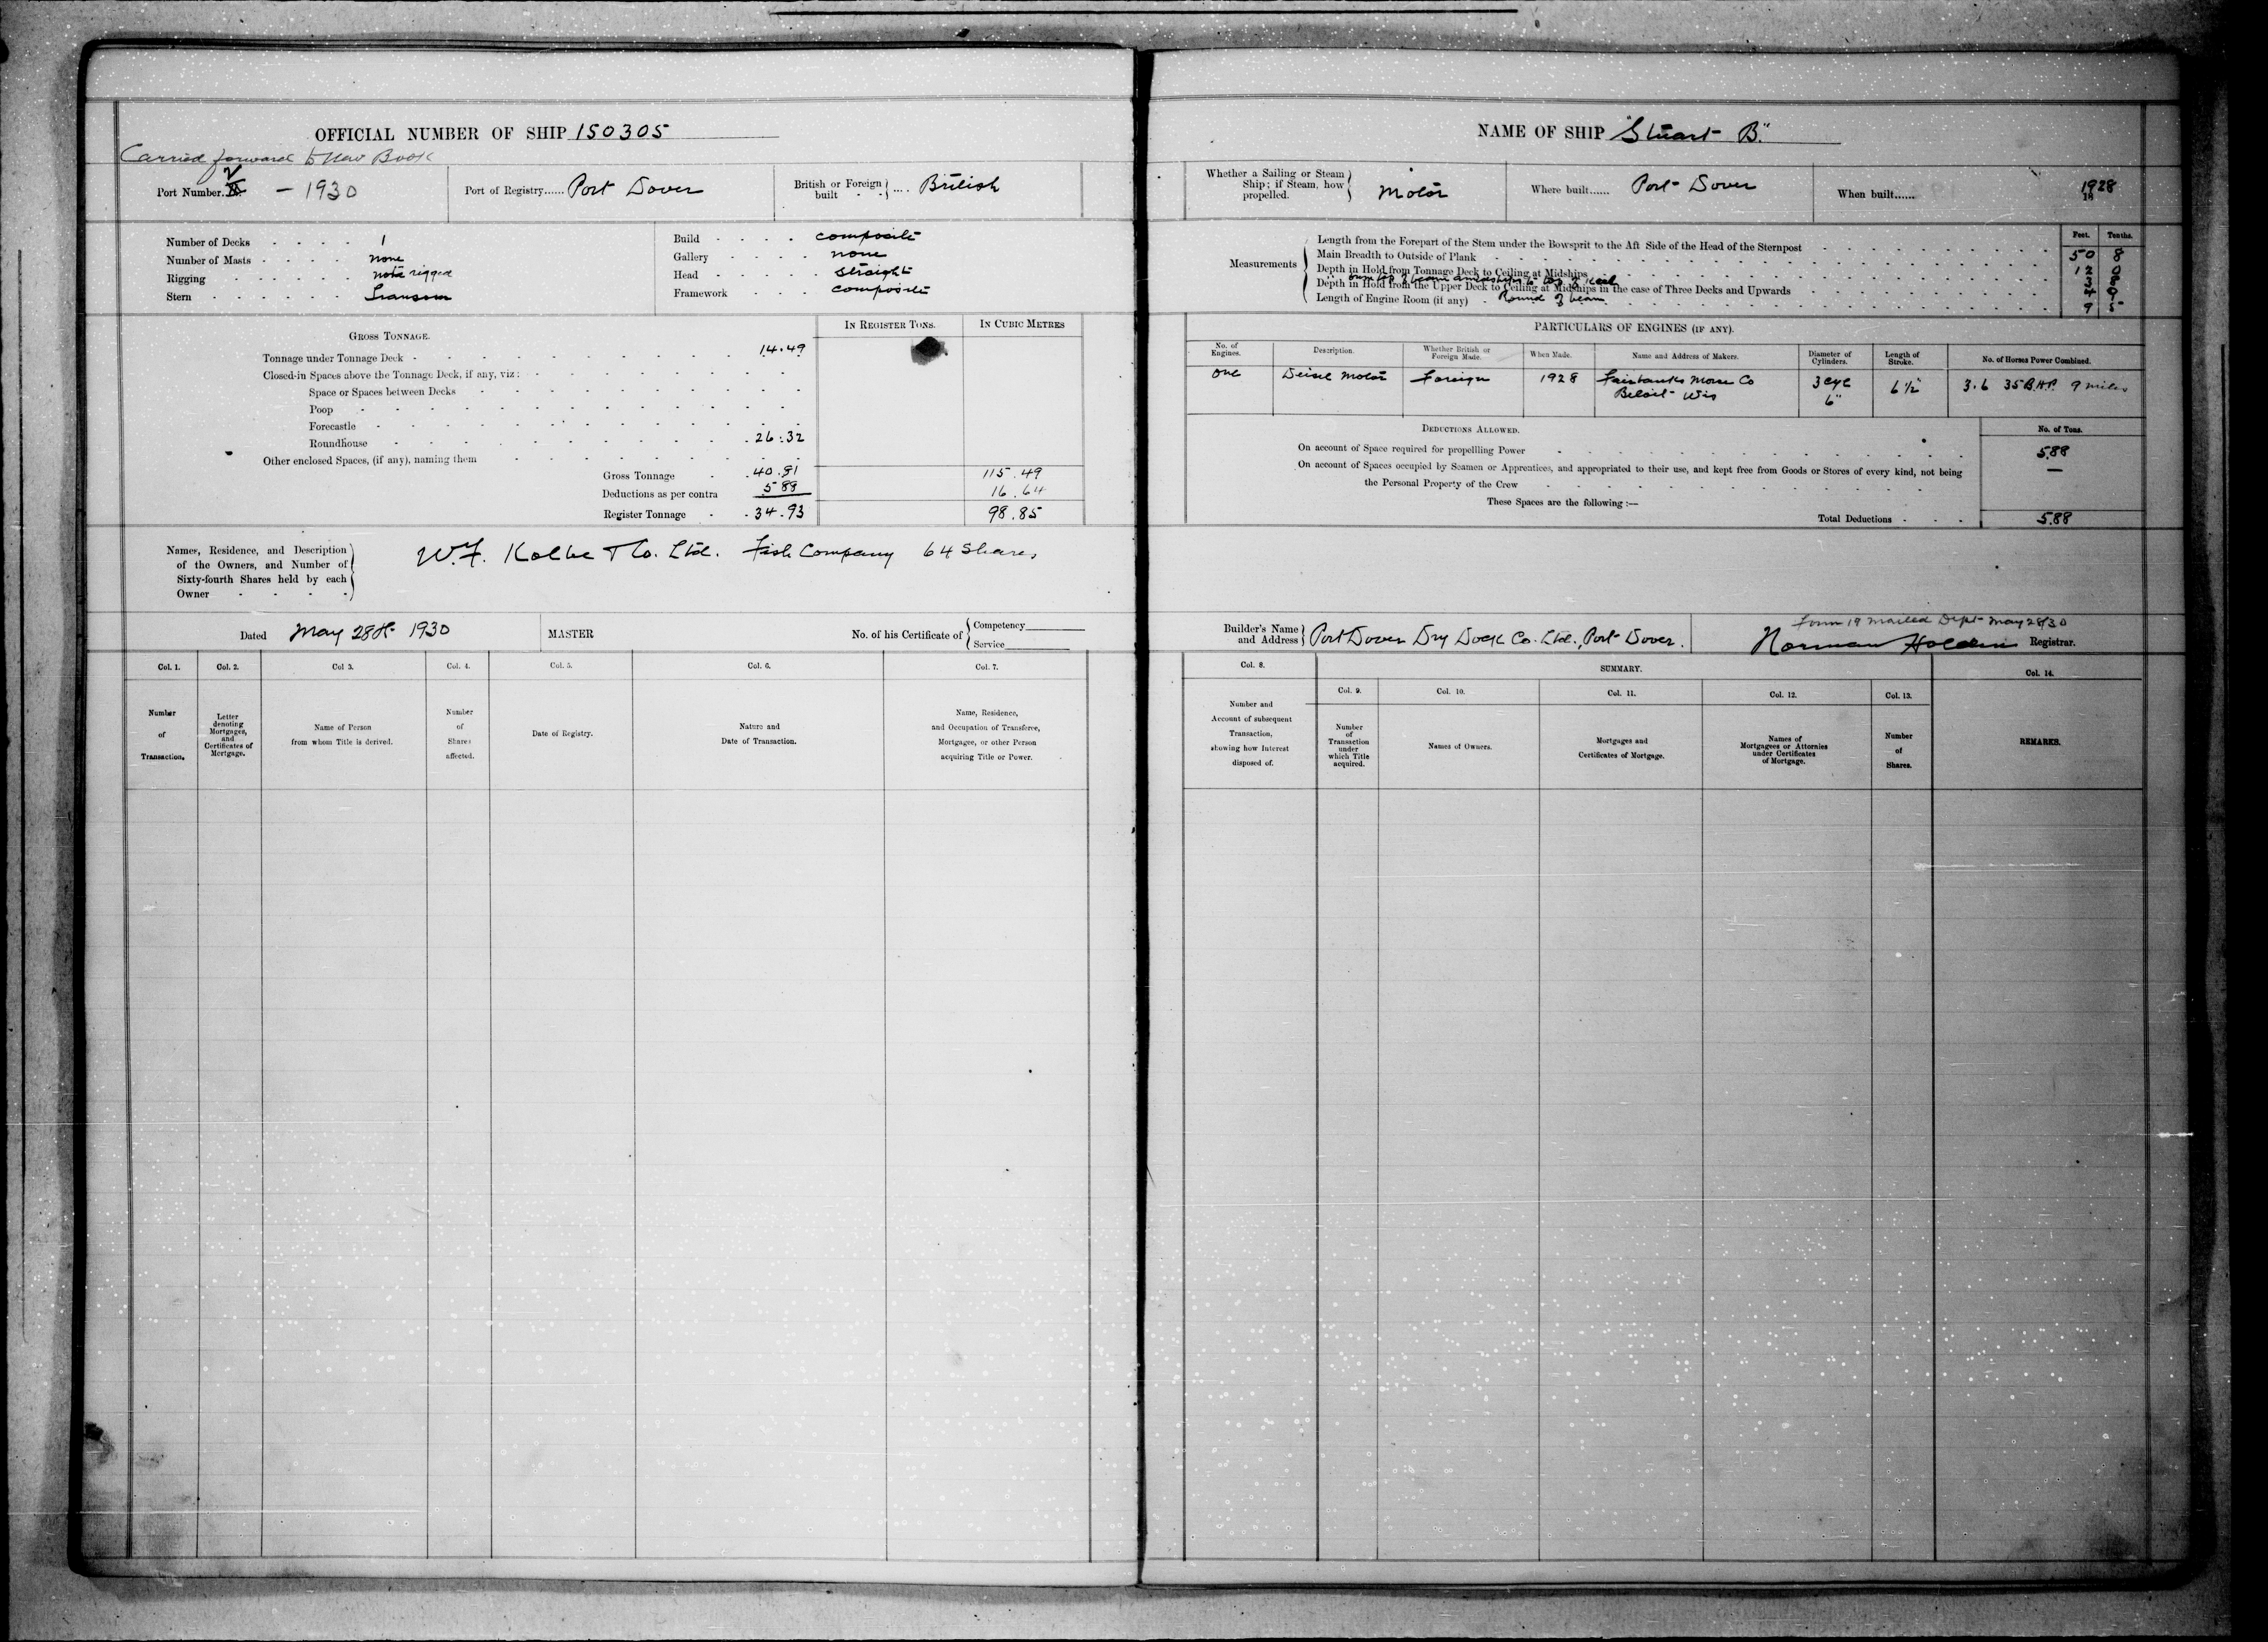 OFFICIAL NUMBER OF SHIP 150305
Carried forward to New Book
Port Number. V — 1930
Port of Registry...... Port Dover
British or Foreign built .... British
Number of Decks 1
Number of Masts none
Rigging not rigged
Stern Transom
Build composite
Gallery none
Head straight
Framework composite
GROSS TONNAGE.
IN REGISTER TONS. IN CUBIC METRES
Tonnage under Tonnage Deck 14.49
Closed-in Spaces above the Tonnage Deck, if any, viz:
Space or Spaces between Decks
Poop
Forecastle
Roundhouse 26.32
Other enclosed Spaces, (if any), naming them
Gross Tonnage 40.81 115.49
Deductions as per contra 5 88 16.64
Register Tonnage 34.93 98.85
Names, Residence, and Description
of the Owners, and Number of
Sixty-fourth Shares held by each
Owner
W.F. Kolbe & Co. Ltd. Fish Company 64 Shares
Dated May 28th 1930
MASTER
No. of his Certificate of
Competency
Service
Col. 1. Col. 2. Col 3. Col. 4. Col. 5. Col. 6. Col. 7.
Number
of
Transaction.
Letter
denoting
Mortgages,
and
Certificates of
Mortgage.
Name of Person
from whom Title is derived.
Number
of
Shares
affected.
Date of Registry.
Nature and
Date of Transaction.
Name, Residence,
and Occupation of Transferee,
Mortgagee, or other Person
acquiring Title or Power.
NAME OF SHIP "Stuart B."
Whether a Sailing or Steam
Ship; if Steam, how
propelled.
Motor
Where built...... Port Dover
When built...... 1928
Measurements
Feet. Tenths.
Length from the Forepart of the Stem under the Bowsprit to the Aft Side of the Head of the Sternpost 50 8
Main Breadth to Outside of Plank 12 0
Depth in Hold from Tonnage Deck to Ceiling at Midships
from top of beam amidships to top of keel
Depth in Hold from the Upper Deck to Ceiling at Midships in the case of Three Decks and Upwards
Round of beam
Length of Engine Room (if any) 9 5
PARTICULARS OF ENGINES (IF ANY).
No. of
Engines.
Description.
Whether British or
Foreign Made.
When Made.
Name and Address of Makers.
Diameter of
Cylinders.
Length of
Stroke.
No. of Horses Power Combined.
One Deisel Motor Foreign 1928 Fairbanks Morse Co 3 cyl 6 1/2" 3.6 35 B.H.P. 9 miles
Beloit Wis 6"
DEDUCTIONS ALLOWED.
No. of Tons.
On account of Space required for propelling Power 5.88
On account of Spaces occupied by Seamen or Apprentices, and appropriated to their use, and kept free from Goods or Stores of every kind, not being —
the Personal Property of the Crew
These Spaces are the following :—
Total Deductions 5.88
Builder's Name
and Address
Port Dover Dry Dock Co. Ltd., Port Dover.
Form 19 mailed Dept May 28/30
Norman Holden Registrar.
Col. 8. SUMMARY. Col. 14.
Col. 9. Col. 10. Col. 11. Col. 12. Col. 13.
Number and
Account of subsequent
Transaction,
showing how Interest
disposed of.
Number
of
Transaction
under
which Title
acquired.
Names of Owners.
Mortgages and
Certificates of Mortgage.
Names of
Mortgagees or Attornies
under Certificates
of Mortgage.
Number
of
Shares.
REMARKS.